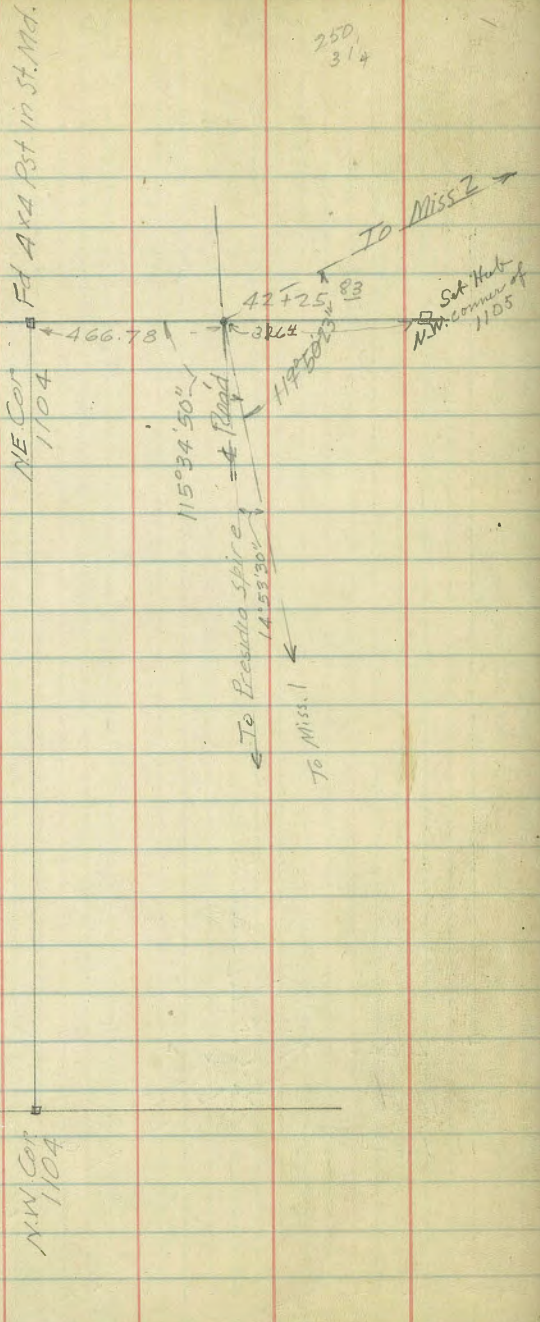 1
250
31 4
Fd 4x4 Pst in St. Md.
To Miss 2
42+25 83
Set Hub
N.W. corner of
1105
466.78
3264
N.E. Cor
1104
115°34'50"
117°50'23"
= 4 Read
To Presidio spire
14°53'30"
To Miss. 1
N.W. Cor
1104